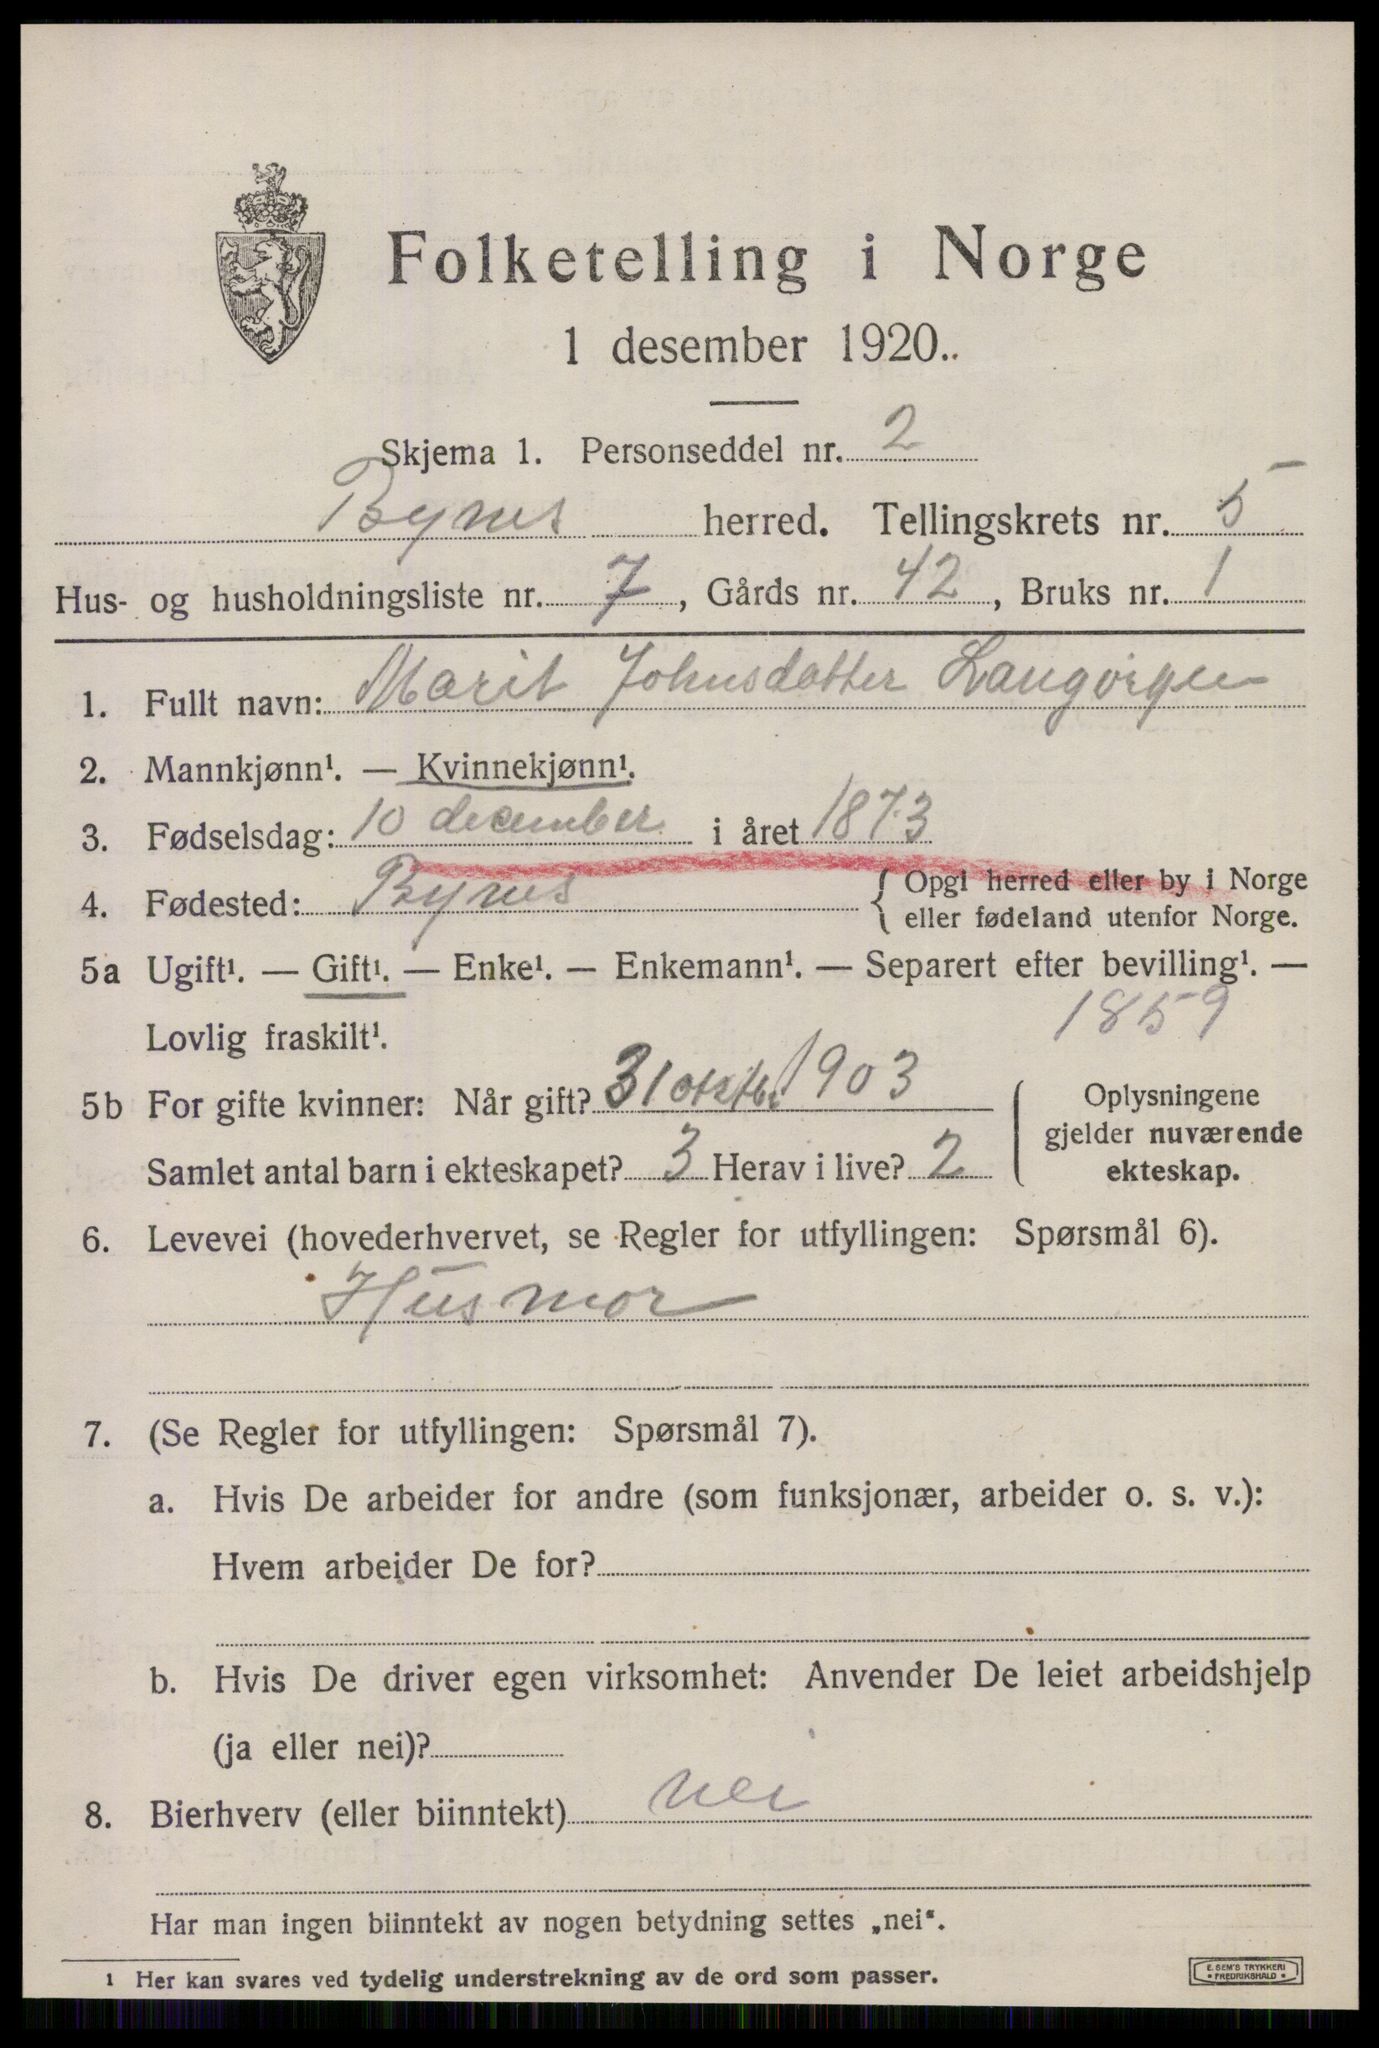 Folketelling i Norge
1 desember 1920..
Skjema 1. Personseddel nr. 2
Bynes herred. Tellingskrets nr. 5
Hus- og husholdningsliste nr. 7, Gårds nr. 42, Bruks nr. 1
1. Fullt navn: Marit Johnsdatter Langørgen
2. Mannkjønn¹. — Kvinnekjønn¹.
3. Fødselsdag: 10 december i året 1873
4. Fødested: Bynes { Opgi herred eller by i Norge
eller fødeland utenfor Norge.
5a Ugift¹. — Gift¹. — Enke¹. — Enkemann¹. — Separert efter bevilling¹. —
Lovlig fraskilt¹. 1859
5b For gifte kvinner: Når gift? 31 oktb. 1903
Samlet antal barn i ekteskapet? 3 Herav i live? 2
Oplysningene
gjelder nuværende
ekteskap.
6. Levevei (hovederhvervet, se Regler for utfyllingen: Spørsmål 6).
Husmor
7. (Se Regler for utfyllingen: Spørsmål 7).
a. Hvis De arbeider for andre (som funksjonær, arbeider o. s. v.):
Hvem arbeider De for?
b. Hvis De driver egen virksomhet: Anvender De leiet arbeidshjelp
(ja eller nei)?
8. Bierhverv (eller biinntekt) nei
Har man ingen biinntekt av nogen betydning settes „nei“.
1 Her kan svares ved tydelig understrekning av de ord som passer.
E. SEM'S TRYKKERI
• FREDRIKSHALD •